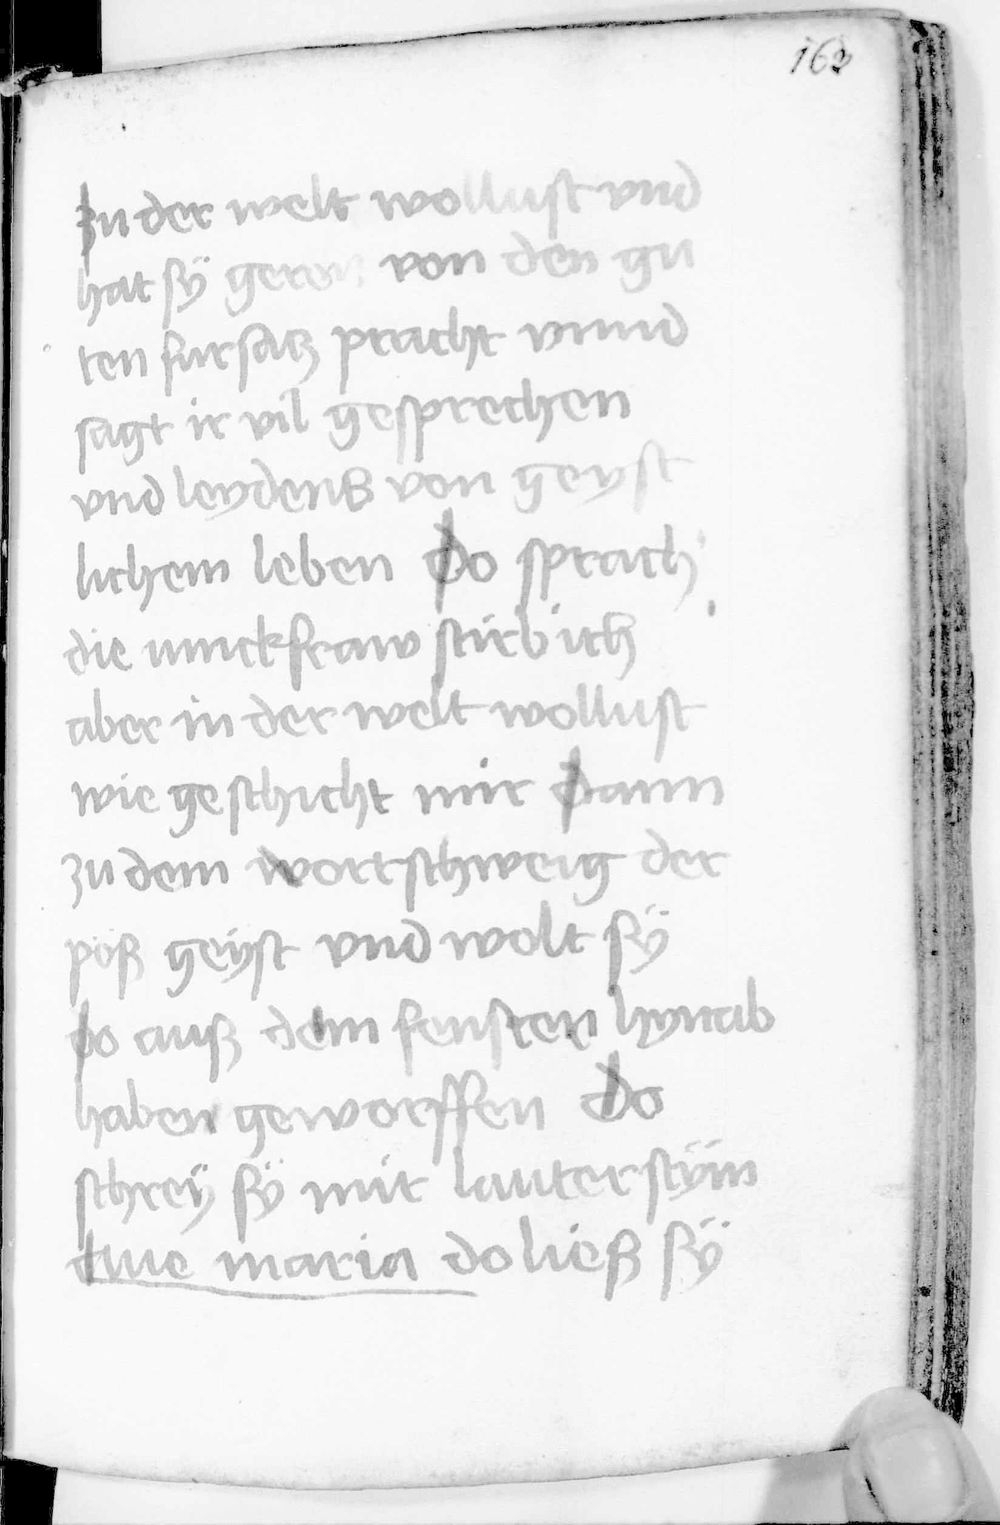 163
zu der welt wollust vnd
hat sÿ geren von den gu
ten fursacz pracht vnnd
sagt ir vil gesprechen
vnd leydenß von geyst
lichem leben Do sprach
die iunckfraw stirb ich
aber in der welt wollust
wie geschicht mir Dann
zu dem wort schweig der
pöß geÿst vnd wolt sÿ
do auß dem fensten hynab
haben geworffen Do
schreÿ sÿ mit lauter stÿm
Aue maria do ließ sÿ